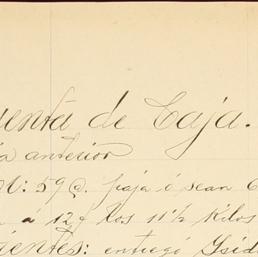 uenta de Caja.
ia anterior
N: 59@. paja ó sean 6
a á 12 los 11½ kilos
ientes: entregó Isid